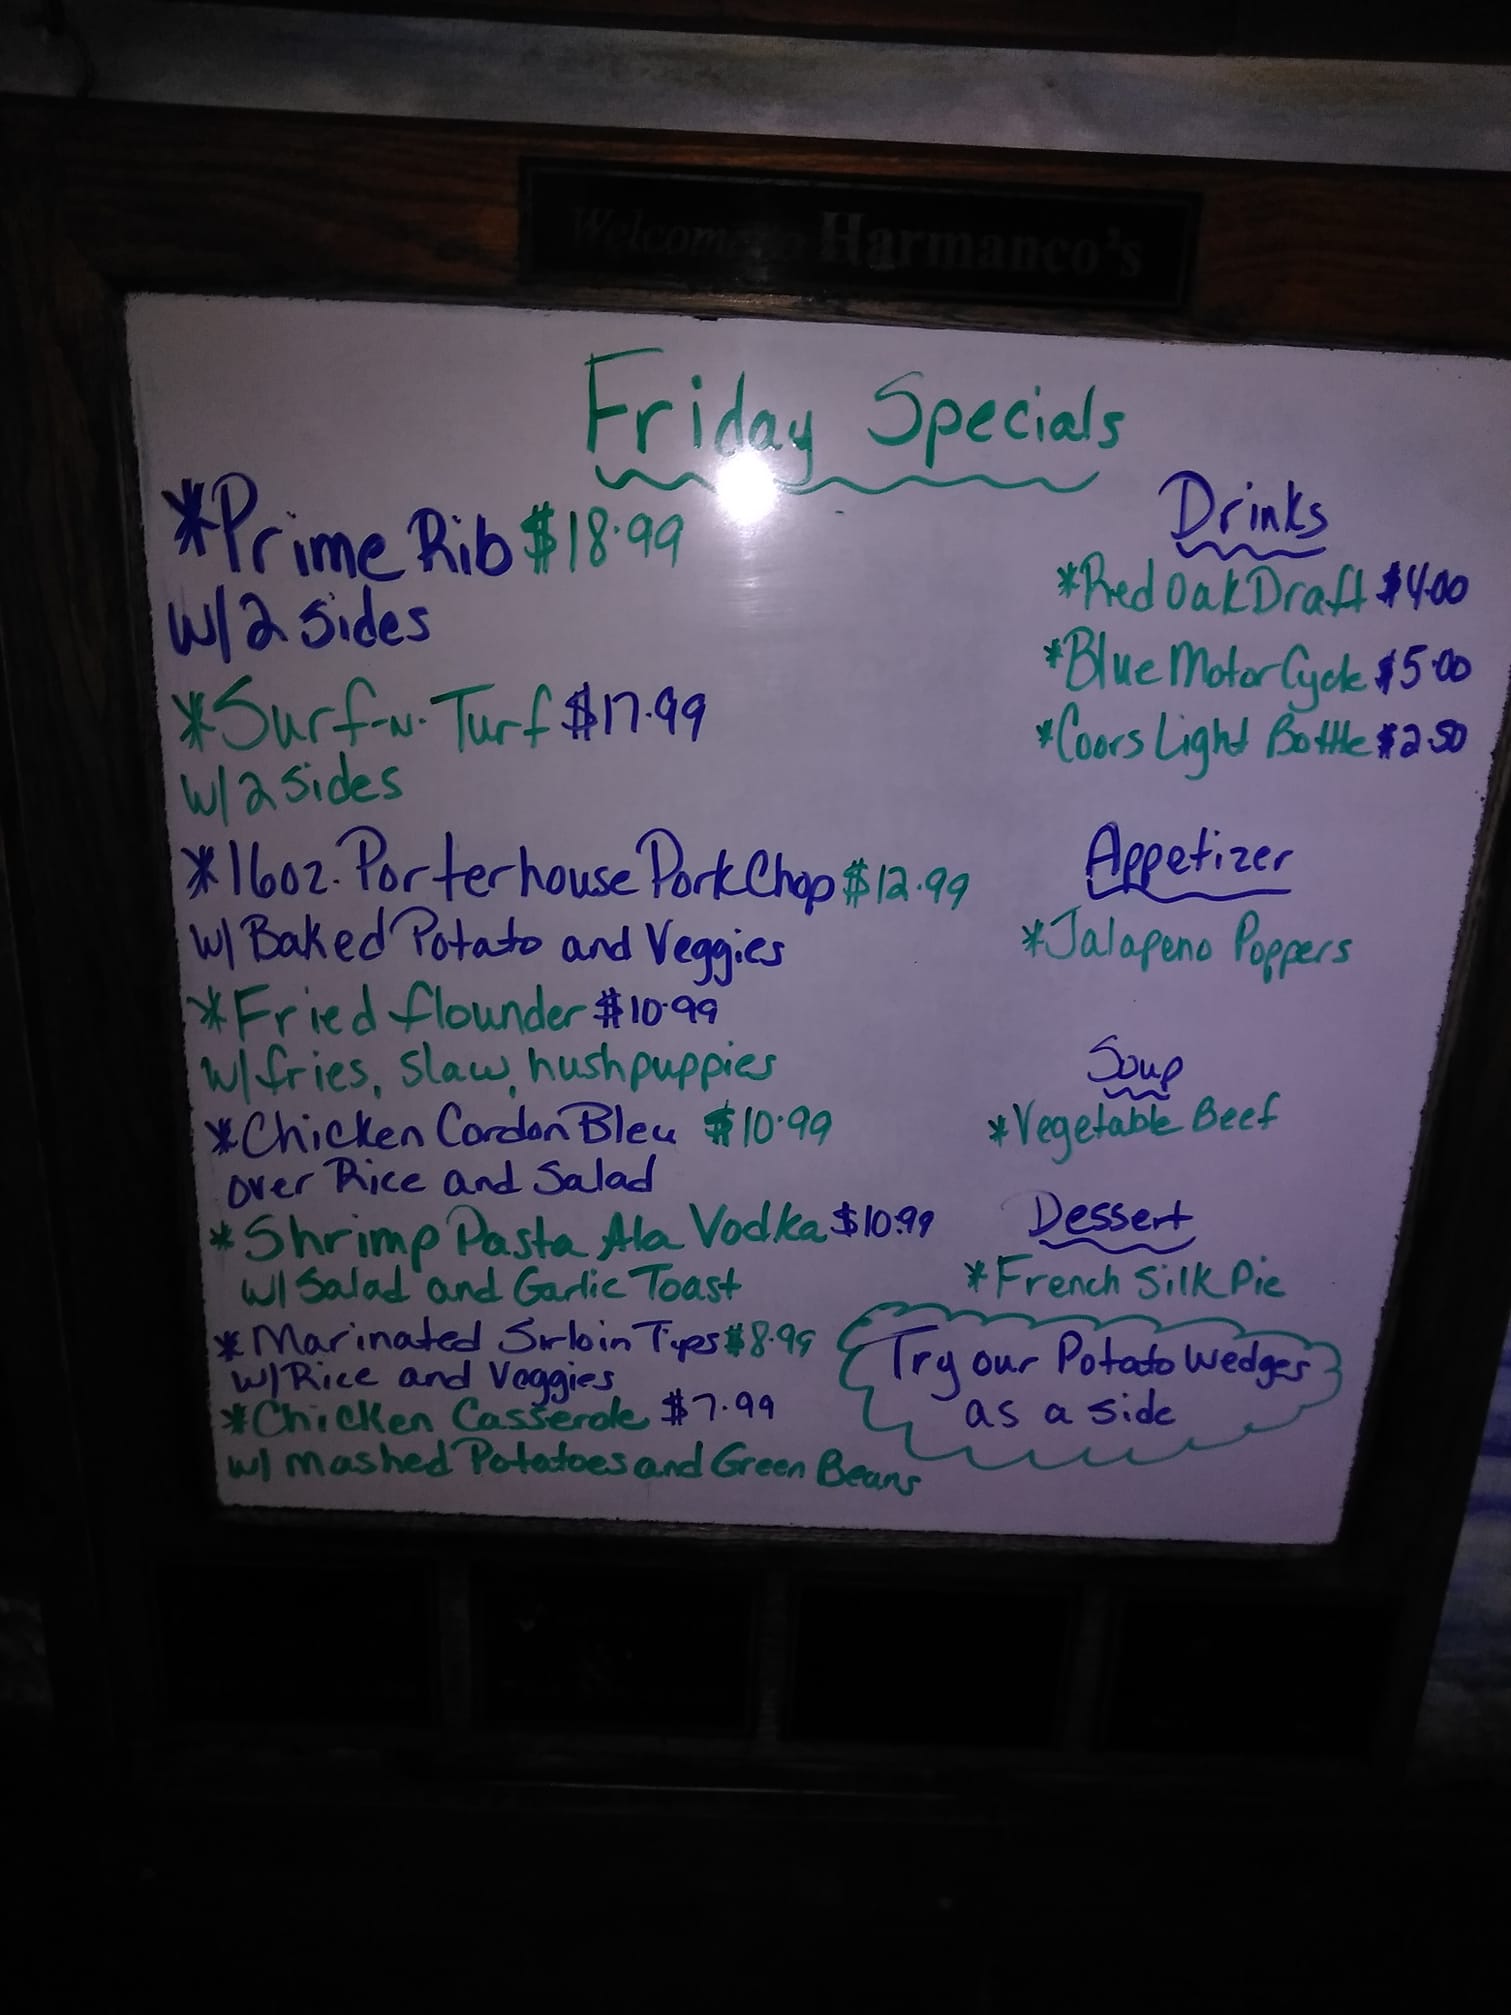 Welcome to Harmanco's
Friday Specials
*Prime Rib $18.99
w/2 sides
*Surf-n-Turf $17.99
w/2 sides
*16oz. Porterhouse Pork Chop $12.99
w/ Baked Potato and Veggies
*Fried flounder $10.99
w/fries, slaw, hushpuppies
*Chicken Cordon Bleu $10.99
over Rice and Salad
*Shrimp Pasta Ala Vodka $10.99
w/ Salad and Garlic Toast
*Marinated Sirloin Tips $8.99
w/Rice and Veggies
*Chicken Casserole $7.99
w/ mashed Potatoes and Green Beans
Drinks
*Red Oak Draft $4.00
*Blue MotorCycle $5.00
*Coors Light Bottle $2.50
Appetizer
*Jalapeno Poppers
Soup
*Vegetable Beef
Dessert
*French Silk Pie
Try our Potato Wedges
as a side